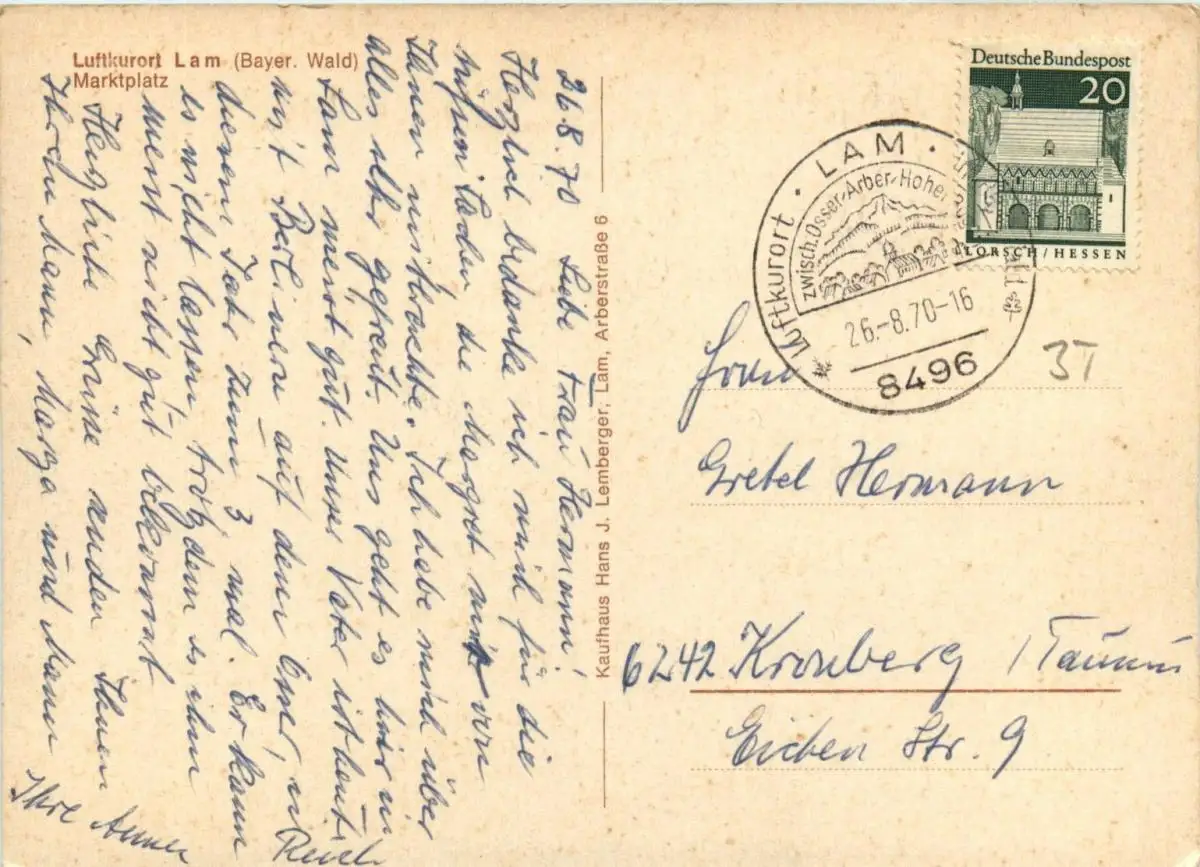 Luftkurort Lam (Bayer. Wald)
Marktplatz
26.8.70 Liebe Frau Hermann!
Herzlich bedanke ich mich für die
süßen Sachen, die Margret mir von
Ihnen mitbrachte. Ich habe mich über
alles sehr gefreut. Uns geht es hier in
Lam meist gut. Unser Vater ist heute
mit Berlinern auf dem Osser, in
diesem Jahr zum 3 mal. Er kann
es nicht lassen, trotzdem es ihm
meist nicht gut bekommt
Herzliche Grüße senden Ihnen
Ihrem Mann, Marga und Mann
Ihre Reich
Kaufhaus Hans J. Lemberger, Lam, Arberstraße 6
Deutsche Bundespost
20
LORSCH/HESSEN
Luftkurort · LAM ·
zwisch. Osser-Arber-Hoher
26.-8.70-16
8496
3T
Frau
Gretel Hermann
6242 Kronberg / Taunus
Eichen Str. 9